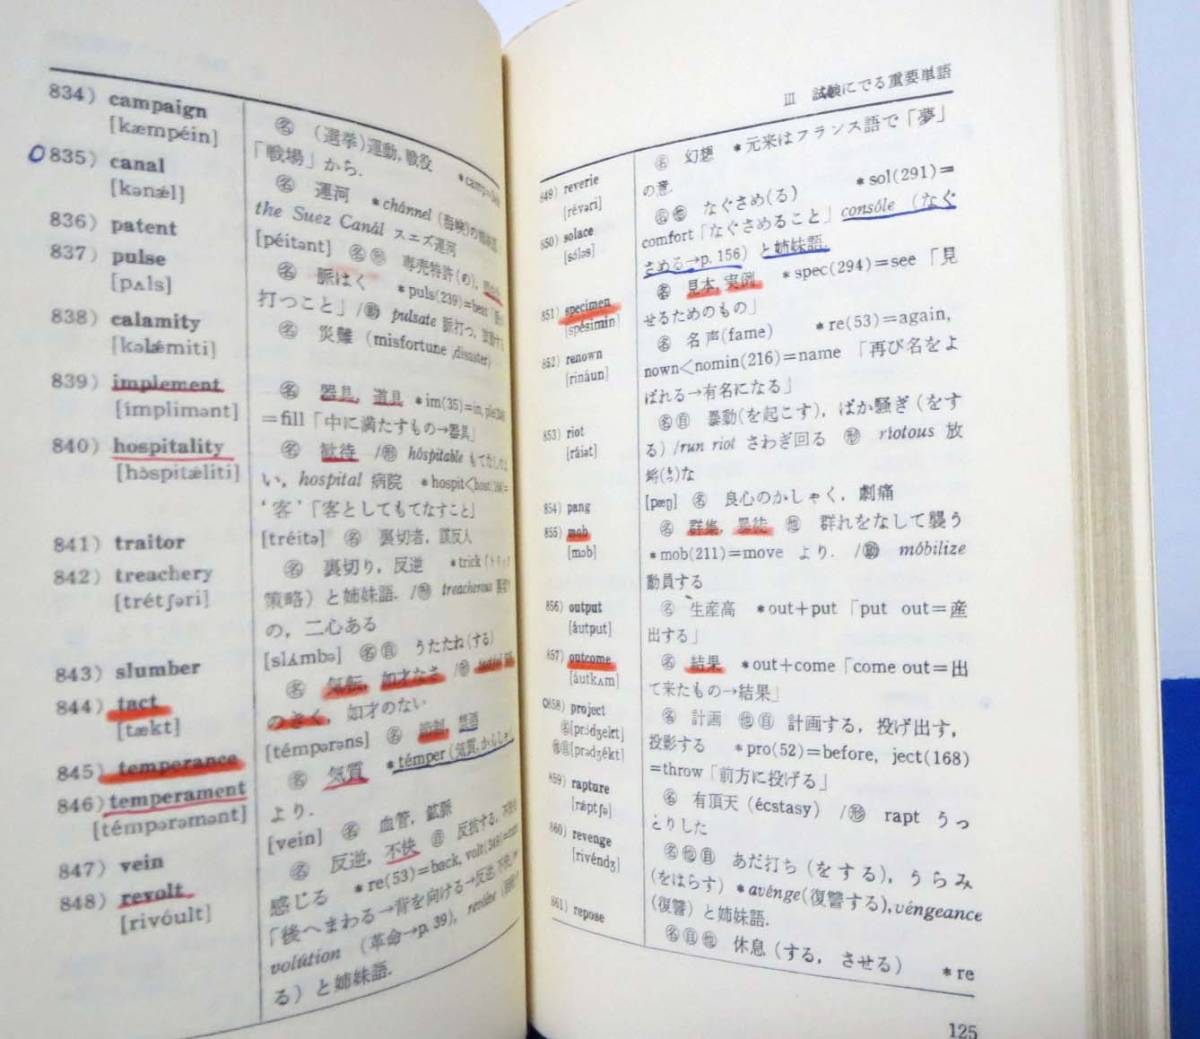 834) campaign
[kæmpéin]
835) canal
[kənǽl]
836) patent
837) pulse
[pʌls]
838) calamity
[kəlǽmiti]
839) implement
[ímplimənt]
840) hospitality
[hɔ̀spitǽliti]
841) traitor
842) treachery
[trétʃəri]
843) slumber
844) tact
[tækt]
845) temperance
846) temperament
[témpərəmənt]
847) vein
848) revolt
[rivóult]
㊔ (選挙)運動, 戦役
「戦場」から.
㊔ 運河 *chánnel (海峡)の
the Suez Canál スエズ運河
[péitənt] ㊔ 専売特許(の),
㊔ 脈はく *puls(239)=beat
打つこと」/㊓ pulsate 脈打つ,
㊔ 災難 (misfortune, disaster)
㊔ 器具, 道具 *im(35)=in,
=fill「中に満たすもの→器具」
㊔ 歓待 /㊒ hóspitable もてなし
い, hospital 病院 *hospit<
‘客’「客としてもてなすこと」
[tréitə] ㊔ 裏切者, 謀反人
㊔ 裏切り, 反逆 *trick (トリック
策略) と姉妹語. /㊒ treacherous
の, 二心ある
[slʌ́mbə] ㊔㊐ うたたね(する)
㊔ 気転, 如才なさ
のきく, 如才のない
[témpərəns] ㊔ 節制, 禁酒
㊔ 気質 *témper (気質, からし
より.
[vein] ㊔ 血管, 鉱脈
㊔ 反逆, 不快 ㊐ 反抗する,
感じる *re(53)=back,
「後へまわる→背を向ける→反逆
volútion (革命→p. 39),
る) と姉妹語.
III 試験にでる重要単語
849) reverie
[révəri]
850) solace
[sɔ́ləs]
851) specimen
[spésimin]
852) renown
[rináun]
853) riot
[ráiət]
854) pang
855) mob
[mɔb]
856) output
[áutput]
857) outcome
[áutkʌm]
858) project
㊔[prɔ́dʒekt]
㊌㊐[prədʒékt]
859) rapture
[rǽptʃə]
860) revenge
[rivéndʒ]
861) repose
㊔ 幻想 *元来はフランス語で「夢」
の意.
㊔㊌ なぐさめ(る) *sol(291)=
comfort「なぐさめること」consóle (なぐ
さめる→p. 156) と姉妹語.
㊔ 見本, 実例 *spec(294)=see 「見
せるためのもの」
㊔ 名声(fame) *re(53)=again,
nown<nomin(216)=name 「再び名をよ
ばれる→有名になる」
㊔㊐ 暴動(を起こす), ばか騒ぎ (をす
る) /run riot さわぎ回る ㊒ riotous 放
埓(らつ)な
[pæŋ] ㊔ 良心のかしゃく, 劇痛
㊔ 群集, 暴徒 ㊌ 群れをなして襲う
*mob(211)=move より. /㊓ móbilize
動員する
㊔ 生産高 *out+put 「put out=産
出する」
㊔ 結果 *out+come「come out=出
て来たもの→結果」
㊔ 計画 ㊌㊐ 計画する, 投げ出す,
投影する *pro(52)=before, ject(168)
=throw「前方に投げる」
㊔ 有頂天 (écstasy) /㊒ rapt うっ
とりした
㊔㊌㊐ あだ打ち (をする), うらみ
(をはらす) *avénge(復讐する), véngeance
(復讐) と姉妹語.
㊔㊐㊌ 休息 (する, させる) *re
125